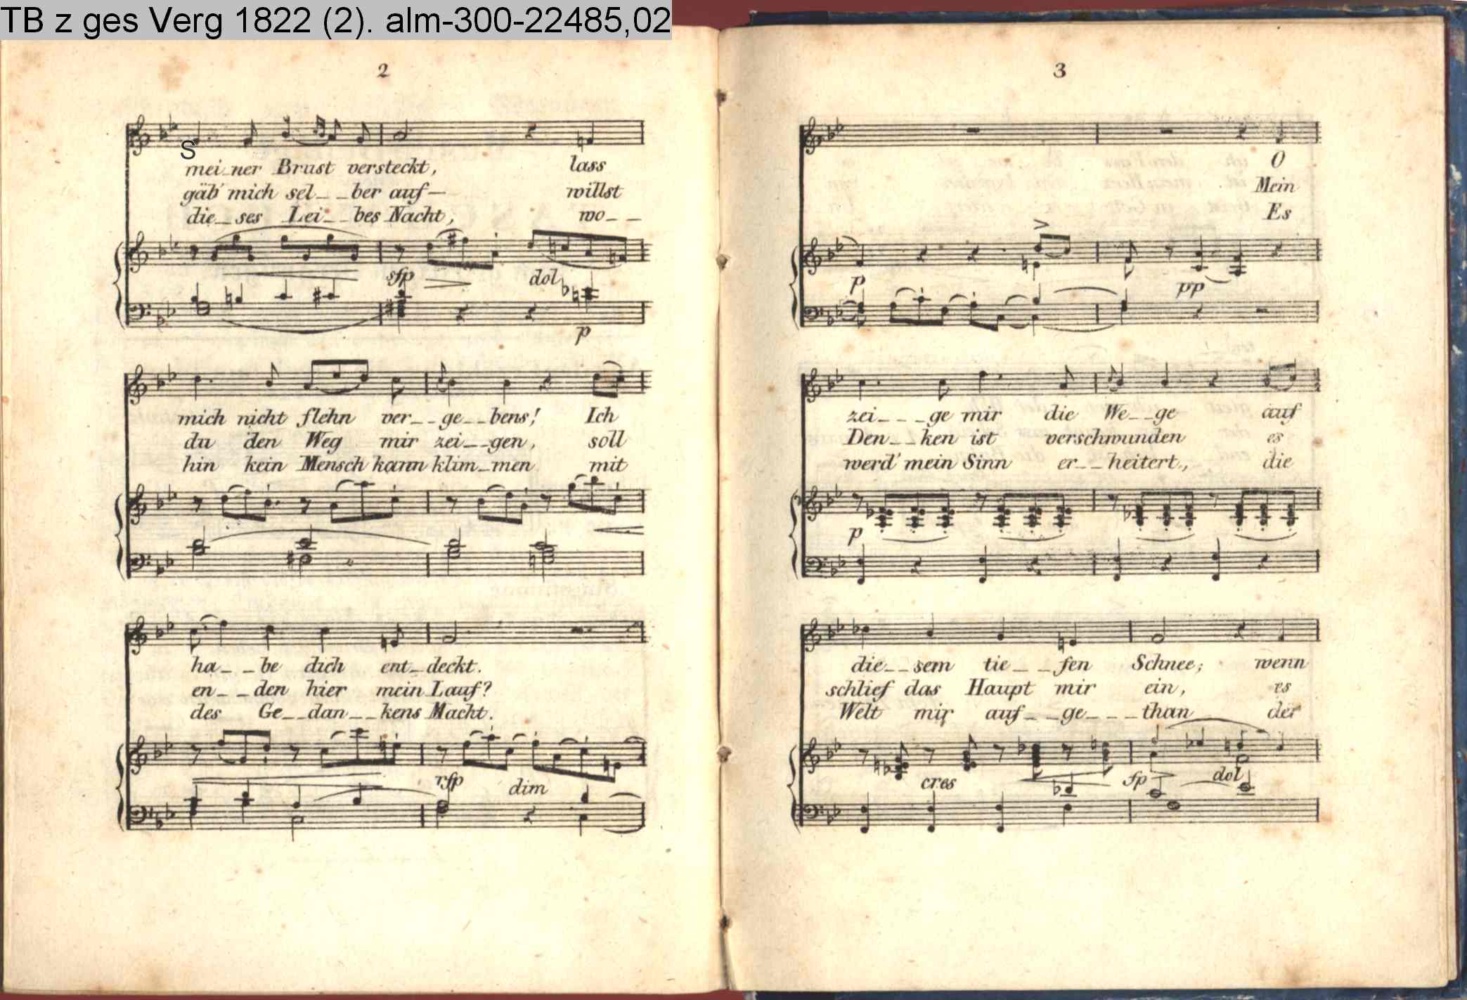 TB z ges Verg 1822 (2). alm-300-22485,02
2
S
mei_ner Brust versteckt, lass
gäb' mich sel__ber auf— willst
die_ses Lei__bes Nacht, wo__
sfp dol
p
mich nicht flehn ver__ge__bens! Ich
du den Weg mir zei__gen, soll
hin kein Mensch kann klim_men mit
ha__be dich ent_deckt.
en__den hier mein Lauf?
des Ge__dan__kens Macht.
dim
3
O
Mein
Es
p pp
zei___ge mir die We__ge auf
Den__ken ist verschwunden es
werd' mein Sinn er__heitert, die
p
die__sem tie__fen Schnee; wenn
schlief das Haupt mir ein, es
Welt mir auf__ge___than der
cres fp dol